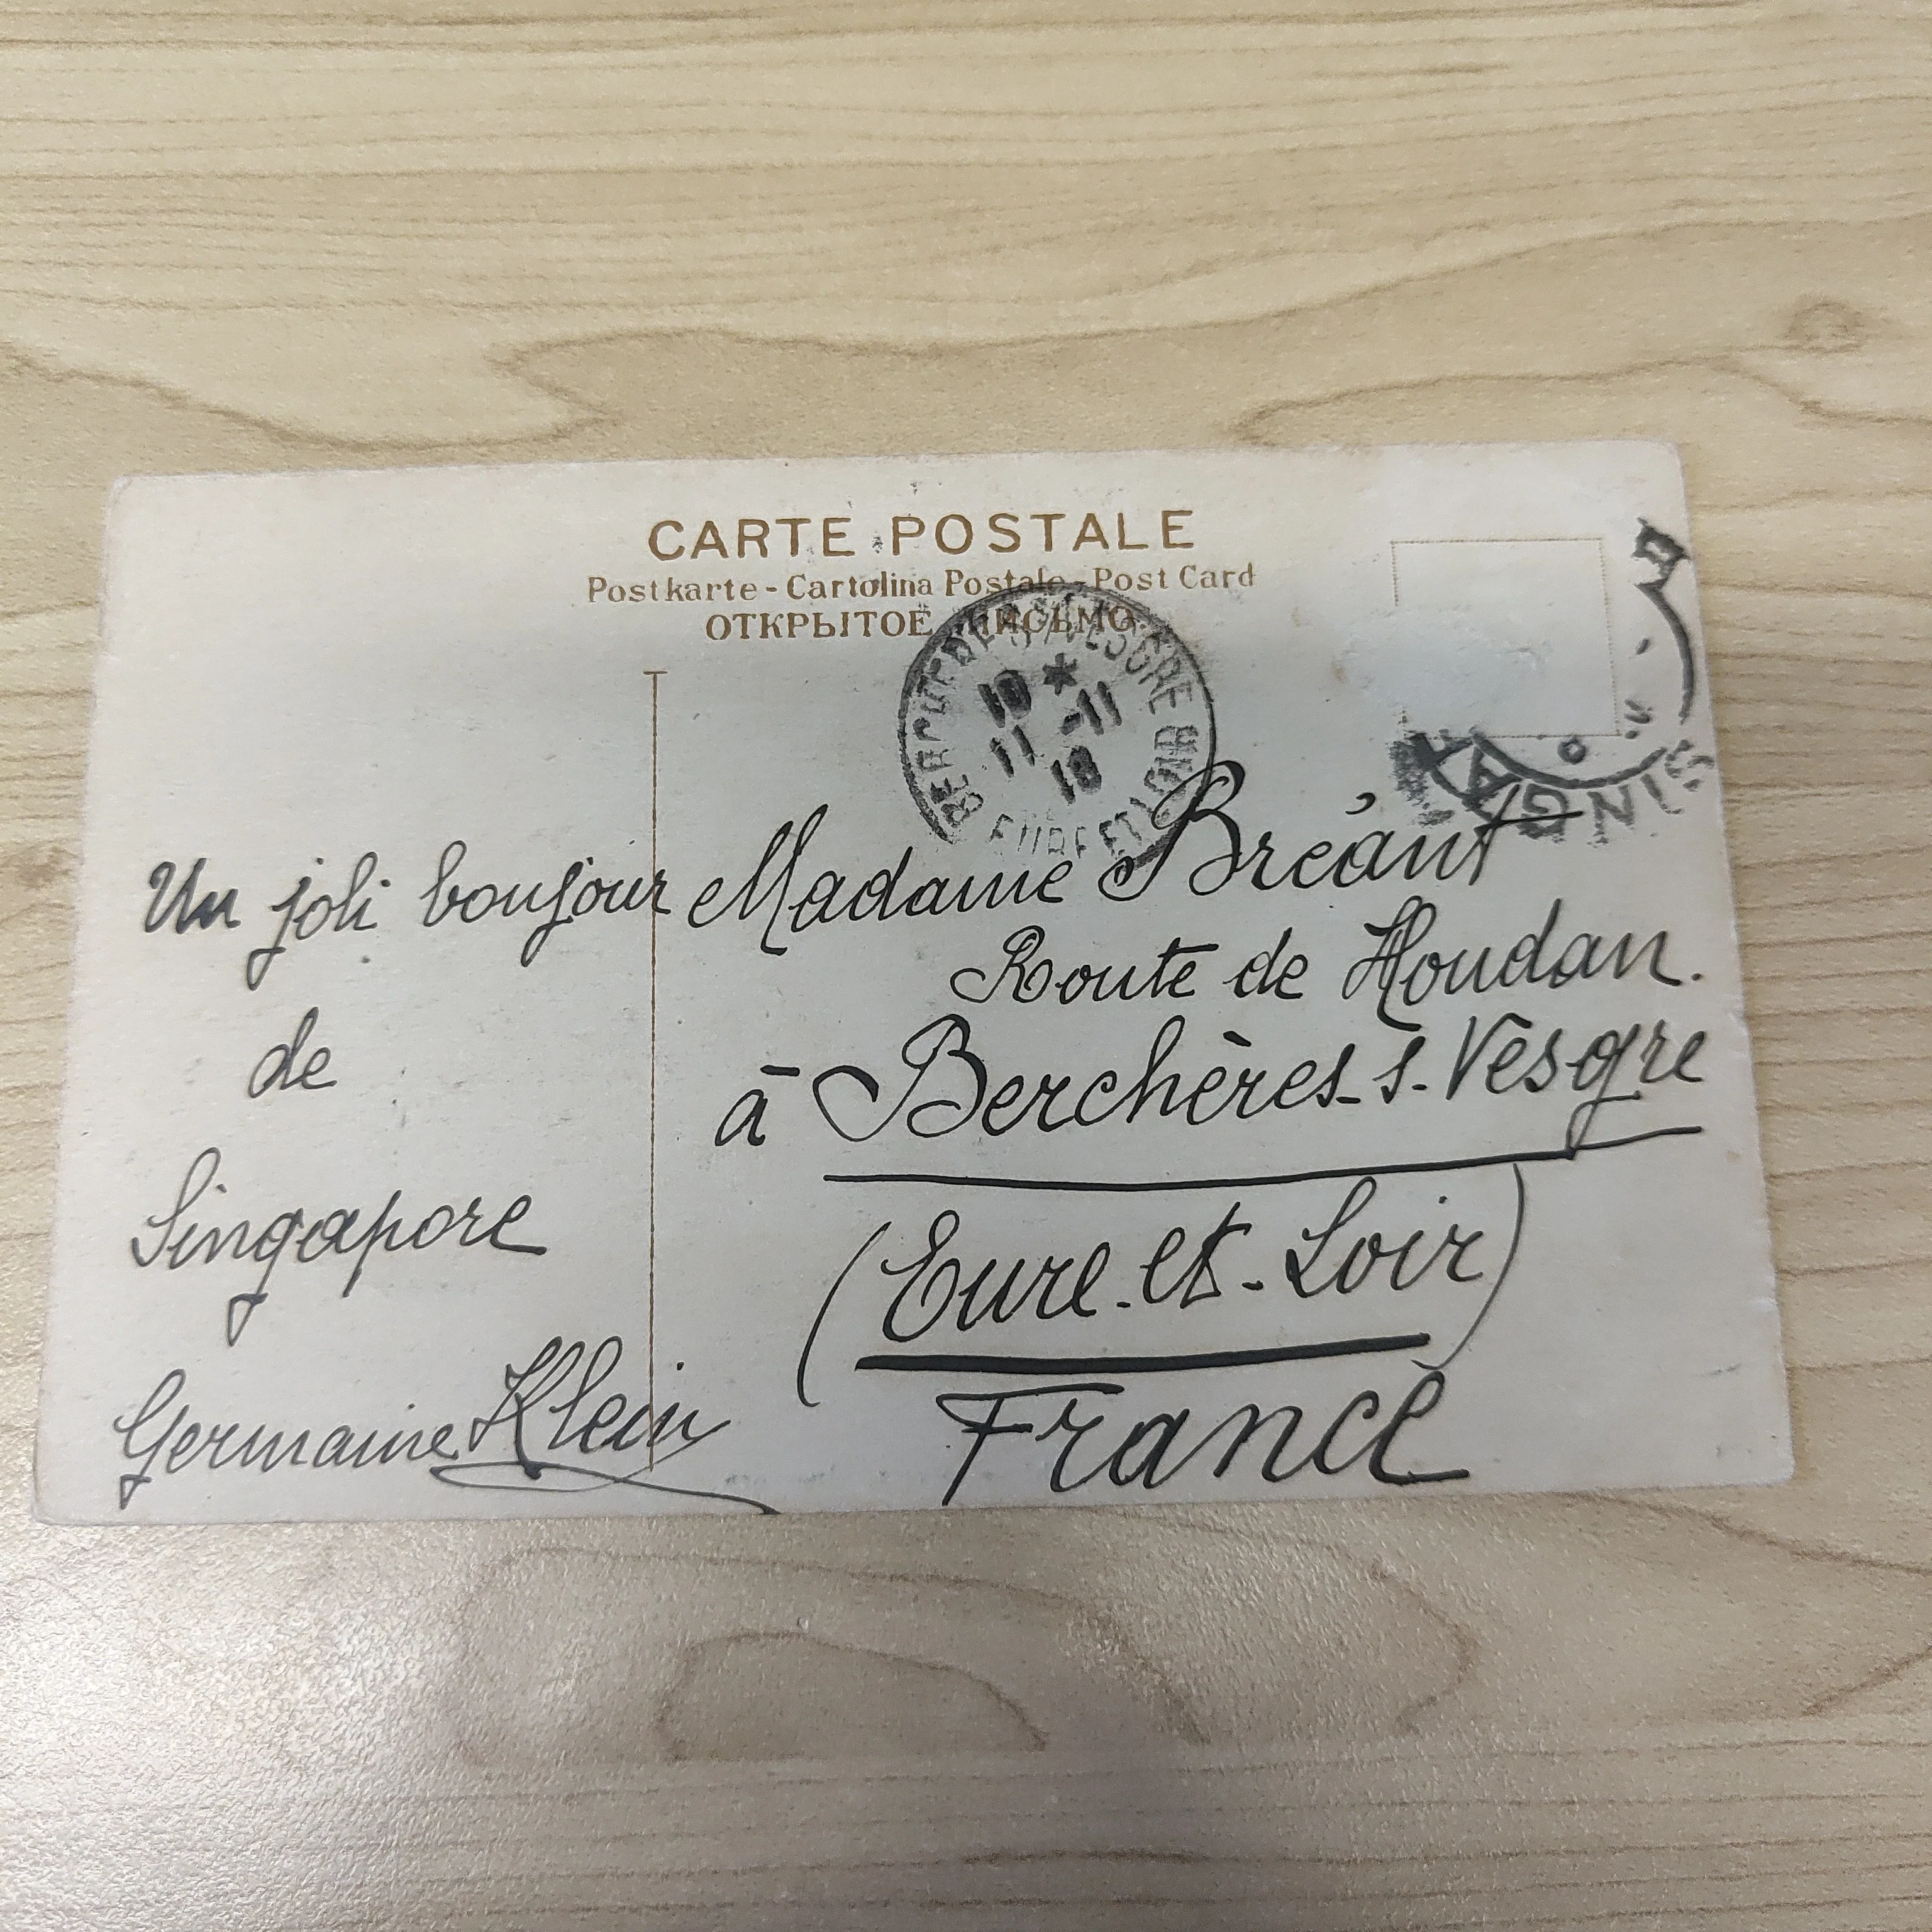 CARTE POSTALE
Postkarte - Cartolina Postale - Post Card
ОТКРЫТОЕ ПИСЬМО
10 *
11 -11
10
EURE ET LOIR
SINGA
Un joli bonjour
de
Singapore
Germaine Klein
Madame Bréant
Route de Houdan.
à Berchères-s-Vesgre
(Eure-et-Loir)
France